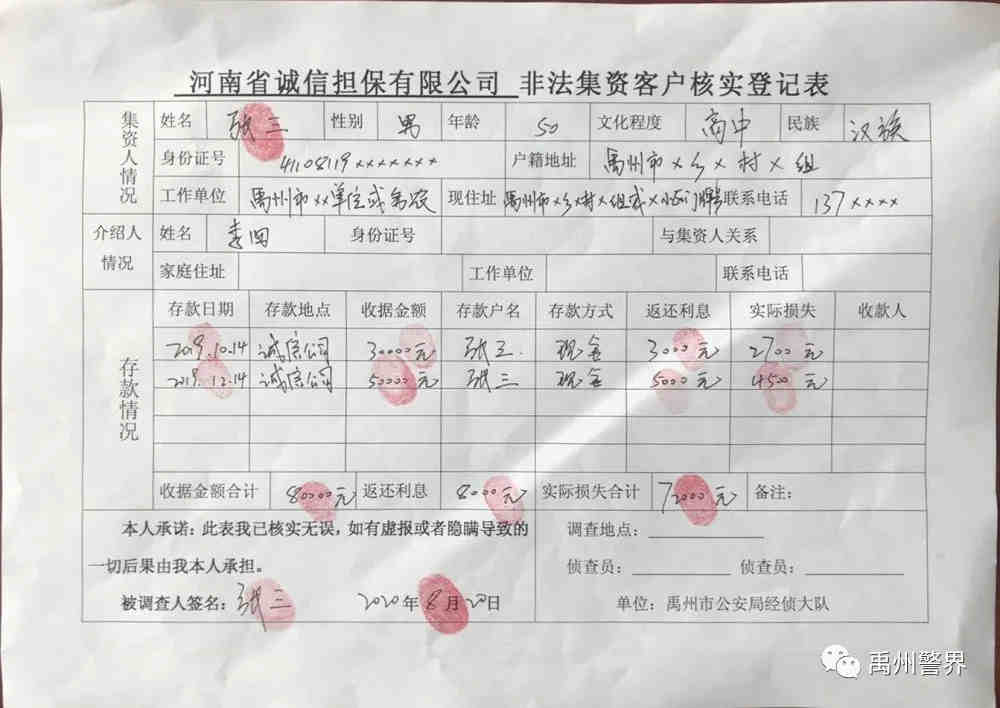 河南省诚信担保有限公司 非法集资客户核实登记表
集资人情况
姓名 张三 性别 男 年龄 50 文化程度 高中 民族 汉族
身份证号 41108119××××××× 户籍地址 禹州市×乡×村×组
工作单位 禹州市××单位或务农 现住址 禹州市×乡×村×组或× 联系电话 137××××
介绍人情况
姓名 李四 身份证号 与集资人关系
家庭住址 工作单位 联系电话
存款情况
存款日期 存款地点 收据金额 存款户名 存款方式 返还利息 实际损失 收款人
2019.10.14 诚信公司 30000元 张三. 现金 3000元 2700元
2019.12.14 诚信公司 50000元 张三 现金 5000元 4500元
收据金额合计 80000元 返还利息 8000元 实际损失合计 72000元 备注:
本人承诺:此表我已核实无误,如有虚报或者隐瞒导致的
一切后果由我本人承担。
被调查人签名:张三 2020年8月20日
调查地点:
侦查员: 侦查员:
单位:禹州市公安局经侦大队
禹州警界